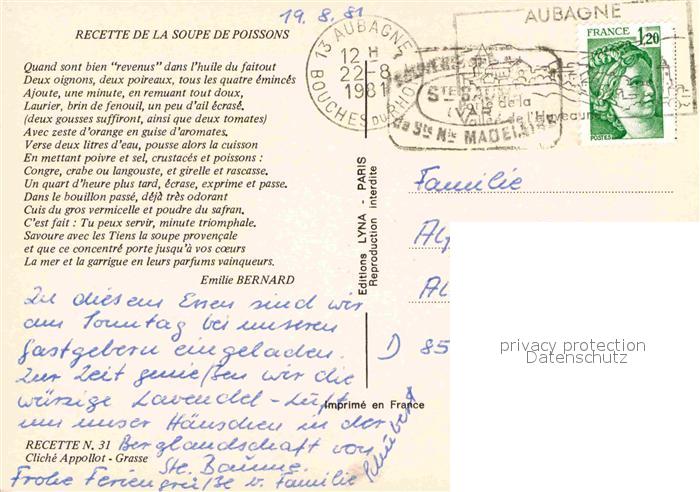 19.8.81
RECETTE DE LA SOUPE DE POISSONS
Quand sont bien "revenus" dans l'huile du faitout
Deux oignons, deux poireaux, tous les quatre émincés
Ajoute, une minute, en remuant tout doux,
Laurier, brin de fenouil, un peu d'ail écrasé.
(deux gousses suffiront, ainsi que deux tomates)
Avec zeste d'orange en guise d'aromates.
Verse deux litres d'eau, pousse alors la cuisson
En mettant poivre et sel, crustacés et poissons :
Congre, crabe ou langouste, et girelle et rascasse.
Un quart d'heure plus tard, écrase, exprime et passe.
Dans le bouillon passé, déjà très odorant
Cuis du gros vermicelle et poudre du safran.
C'est fait : Tu peux servir, minute triomphale.
Savoure avec les Tiens la soupe provençale
et que ce concentré porte jusqu'à vos cœurs
La mer et la garrigue en leurs parfums vainqueurs.
Emilie BERNARD
Zu diesem Essen sind wir
am Sonntag bei unseren
Gastgebern eingeladen.
Zur Zeit genießen wir die
würzige Lavendel-Luft
um unser Häuschen in der
Berglandschaft von
Ste. Baume.
Frohe Feriengrüße v. Familie
RECETTE N. 31
Cliché Appollot - Grasse
Editions LYNA - PARIS
Reproduction interdite
Imprimé en France
13 AUBAGNE
12 H
22-8
1981
BOUCHES DU RHONE
AUBAGNE
de la
de l'Huveaune
Ste BAUME
(VAR)
de Ste Mie MADELEINE
FRANCE
1,20
POSTES
Familie
Al
Al
D 85
privacy protection
Datenschutz